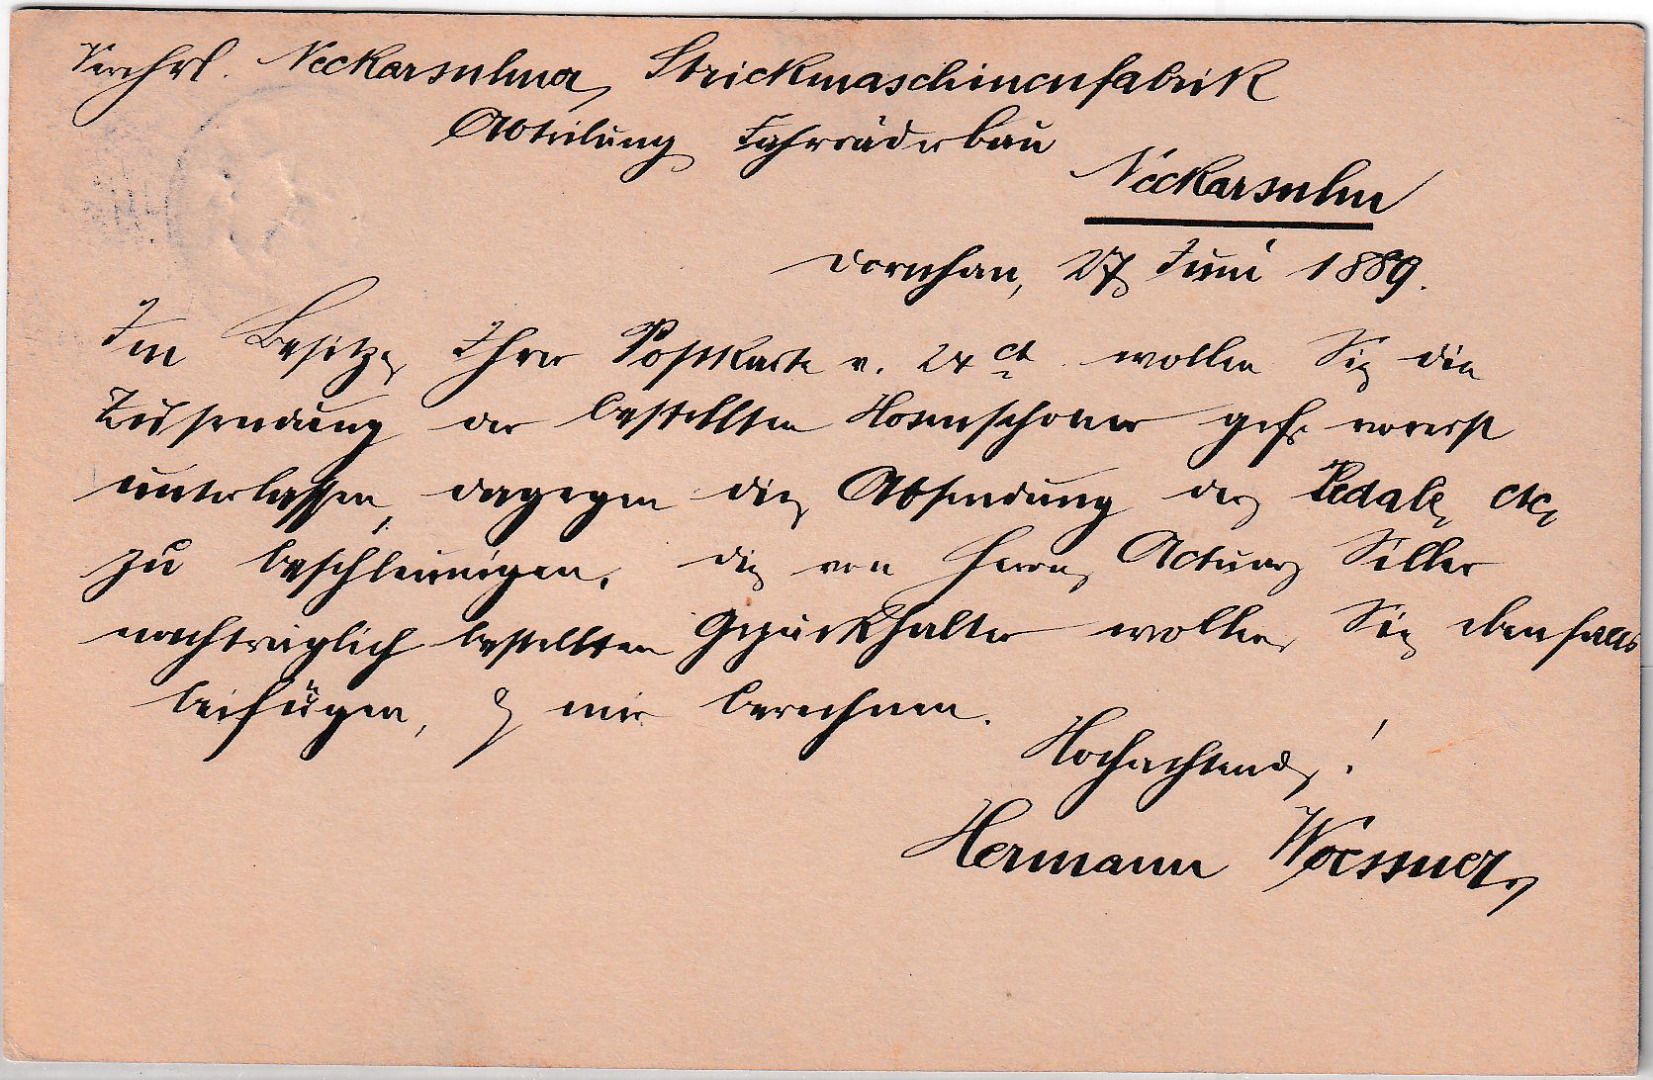 Verehrl. Neckarsulmer Strickmaschinenfabrik
Abteilung Fahrräderbau
Neckarsulm
Dornhan, 27 Juni 1889.
Im Besitze Ihrer Postkarte v. 24 ct. wollen Sie die
Zusendung der bestellten Hosenschoner gefl. vorerst
unterlassen, dagegen die Absendung der Pedale etc
zu beschleunigen, die von Herrn Actuar Siller
nachträglich bestellten Gepäckhalter wollen Sie ebenfalls
beifügen, & mir berechnen.
Hochachtend!
Hermann Woessner